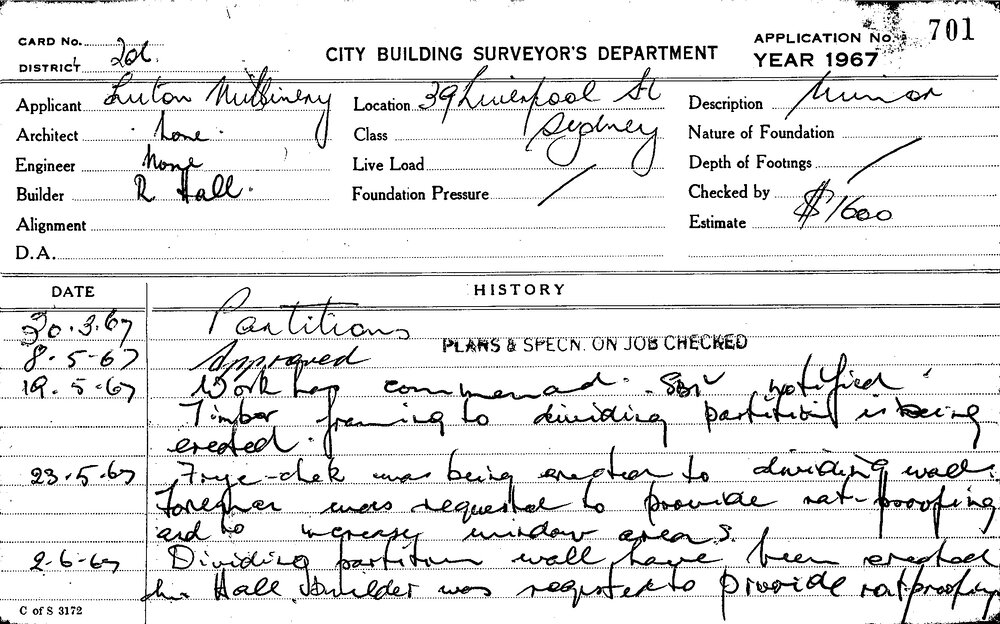 CARD No.
DISTRICT
CITY BUILDING SURVEYOR'S DEPARTMENT
APPLICATION No. 701
YEAR 1967
Applicant Luton Millinery
Location 39 Liverpool St
Sydney
Description Minor
Architect None.
Class
Nature of Foundation
Engineer None
Live Load
Depth of Footings
Builder R Hall.
Foundation Pressure
Checked by
Alignment
Estimate $1600
D.A.
DATE HISTORY
30.3.67 Partitions
8.5-67 Approved PLANS & SPECN. ON JOB CHECKED
19.5-67 Work has commenced. notified.
Timber framing to dividing partition is being
erected.
23.5.67 was being erected to dividing wall.
Foreman was requested to provide rat-proofing
and to increase window areas.
2-6-67 Dividing partition wall have been erected
Mr Hall Builder was requested to provide ratproofing
C of S 3172